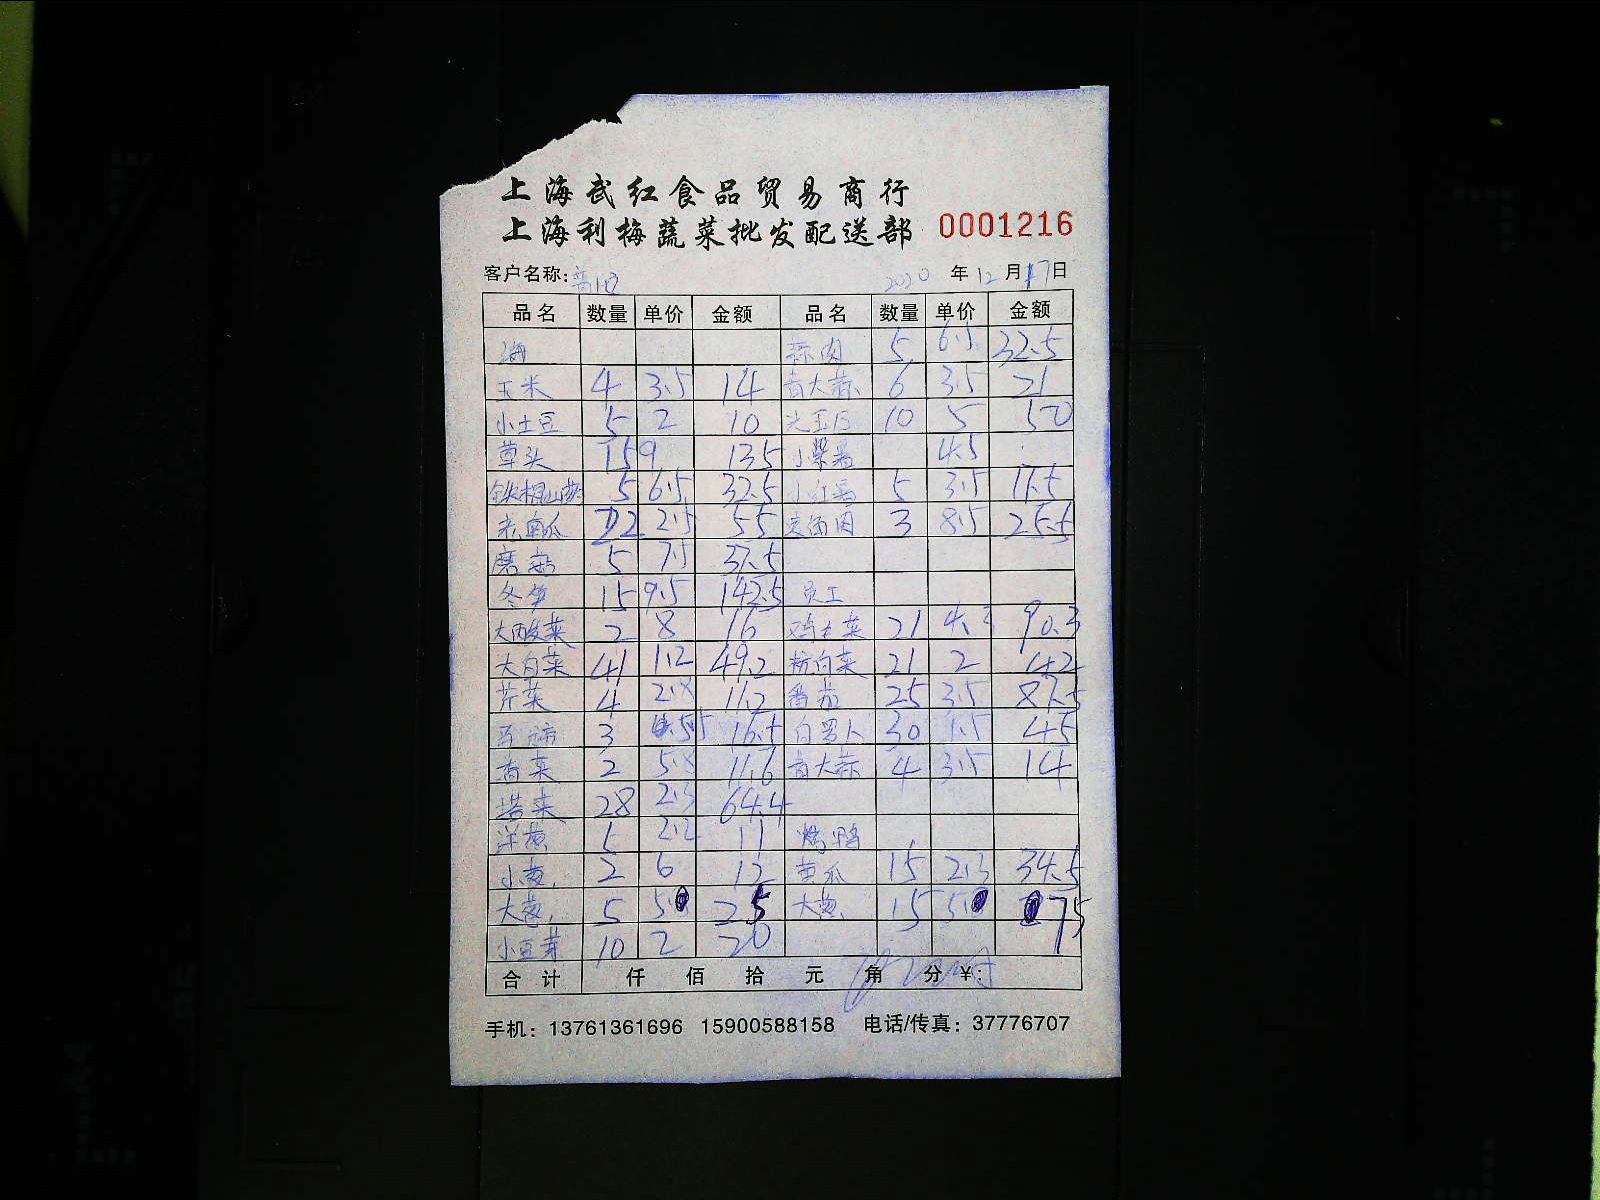 上海武红食品贸易商行
上海利梅蔬菜批发配送部 0001216
客户名称: 2020 年 12 月 17 日
品名 数量 单价 金额 品名 数量 单价 金额
蒜肉 5 6.5 32.5
玉米 4 3.5 14 青大蒜 6 3.5 21
小土豆 5 2 10 10 5 50
草头 15 9 135 小紫薯 4.5
铁棍山药 5 6.5 32.5 小红薯 5 3.5 17.5
老南瓜 22 2.5 55 3 8.5 25.5
蘑菇 5 7.5 37.5
冬笋 15 9.5 142.5 员工
大酸菜 2 8 16 鸡毛菜 21 4.3 90.3
大白菜 41 1.2 49.2 杭白菜 21 2 42
芹菜 4 2.8 11.2 番茄 25 3.5 87.5
马蹄 3 5.5 16.5 白萝卜 30 1.5 45
香菜 2 5.8 11.6 青大蒜 4 3.5 14
塔菜 28 2.3 64.4
洋葱 5 2.2 11 烤鸭
小葱 2 6 12 黄瓜 15 2.3 34.5
大葱 5 5 25 大葱 15 5 75
小豆芽 10 2 20
合计 仟 佰 拾 元 角 分 ¥:
手机: 13761361696 15900588158 电话/传真: 37776707